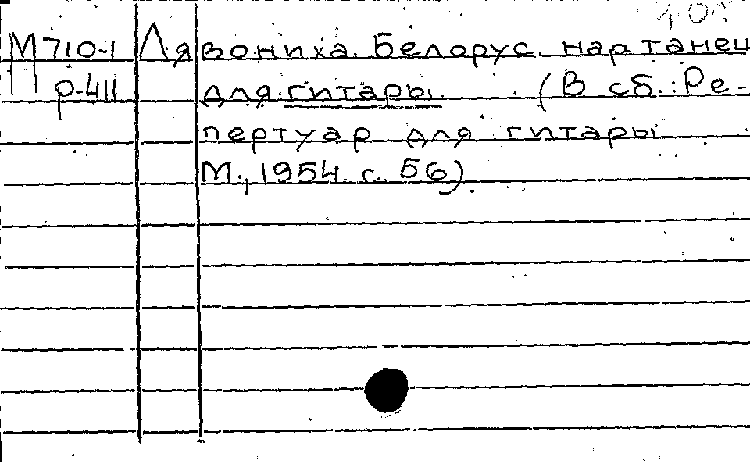 М710-1 Лявониха. Белорус. нар танец
р-411 для гитары. (В сб.: Ре-
пертуар для гитары
М., 1954 с. 56)